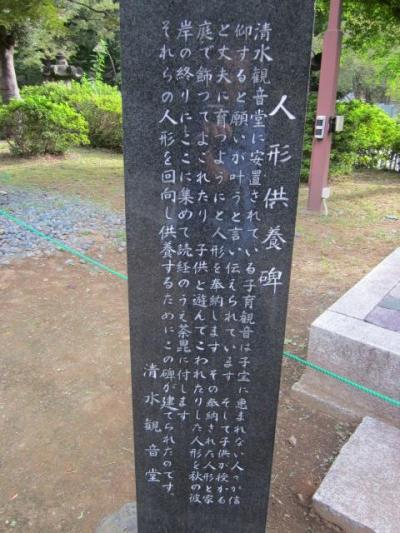 人形供養碑
清水観音堂に安置されている子育観音は子宝に恵まれない人々が信
仰すると願いが叶うと言い伝えられています そして子供が授かる
と丈夫に育つようにと人形を奉納します その奉納された人形と家
庭で飾ってよごれたり 子供と遊んでこわれたりした人形を秋の彼
岸の終りにここに集めて読経のうえ荼毘に付します
それらの人形を回向し供養するためにこの碑が建てられたのです。
清水観音堂